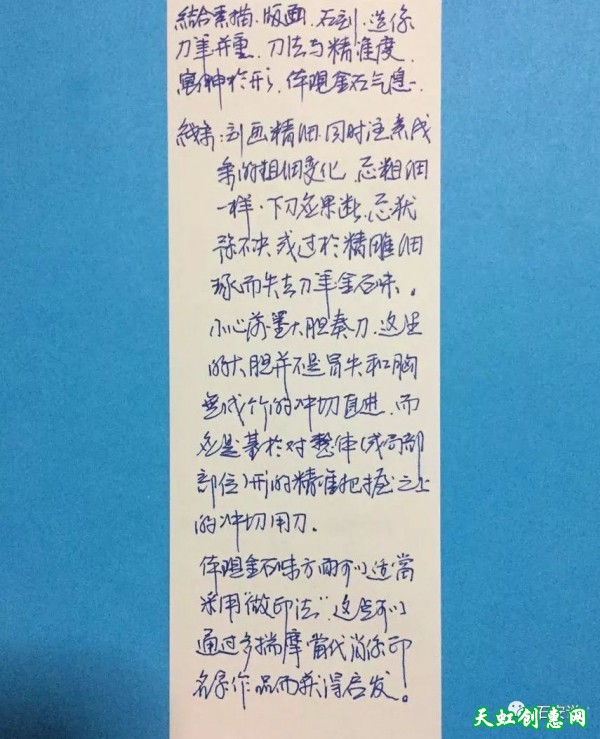 結合素描、版画、石刻、造像
刀筆并重、刀法与精準度、
寓神於形、体现金石气息。
线条：刻画精细、同时注意线
条的粗细变化、忌粗细
一样、下刀应果断、忌犹
豫不决或过於精雕细
琢而失去刀筆金石味。
小心落墨大胆奏刀、这里
的大胆并不是冒失和胸
無成竹的冲切直进、而
应是基於对整体(或局部
部位)形的精準把握之上
的冲切用刀。
体现金石味方面可以适當
采用“做印法”这点可以
通过多揣摩當代肖像印
名家作品而获得启发。
天虹创意网